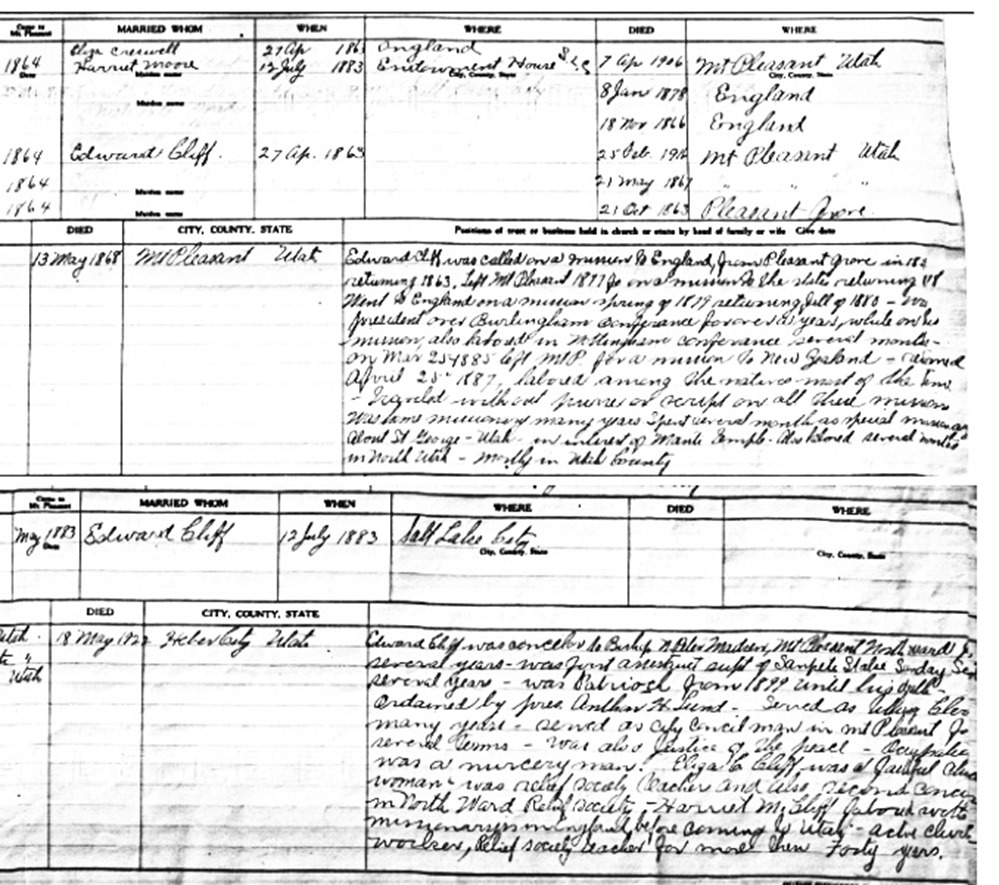 Came to Mt. Pleasant MARRIED WHOM WHEN WHERE DIED WHERE
Eliza Creswell 27 Ap 1863 England
1864 Harriet Moore 12 July 1883 Endowment House S L C 7 Ap 1906 Mt Pleasant Utah
Date Maiden name City, County, State City, County, State
8 Jan 1878 England
Maiden name
18 Nov 1866 England
1864 Edward Cliff. 27 Ap. 1863 25 Feb. Mt Pleasant Utah
1864 Maiden name 21 May 1867 " " "
1864 Maiden name 21 Oct 1863 Pleasant Grove
DIED CITY, COUNTY, STATE Positions of trust or business held in church or state by head of family or wife Give date
13 May 1868 Mt Pleasant Utah Edward Cliff was called on a mission to England, from Pleasant Grove in
returning 1863. Left Mt Pleasant 1877 for a mission to the states returning
Went to England on a mission spring of 1879 returning fall of 1880 -
president over conferance for over a years, while on his
mission, also labored in Nottingham conferance several months -
on Mar left Mt P. for a mission to New Zealand -
April 25th 1887, labored among the natives most of the time
- traveled without purse or script on all these missions
Was home missionery many years Spent several month as special
about St George - Utah - in interest of Manti Temple - Also labored several months
in North Utah - Mostly in Utah County
Came to Mt. Pleasant MARRIED WHOM WHEN WHERE DIED WHERE
May 1883 Edward Cliff 12 July 1883 Salt Lake City
Date City, County, State City, County, State
DIED CITY, COUNTY, STATE
Utah. 18 May 1922 Heber City Utah Edward Cliff was to Bishop N Peter Madsen, Mt Pleasant North ward
" several years - was first supt of Sanpete Stake Sunday
Utah several years - was Patriarch from 1899 until his
ordained by pres. Anthon H Lund - Served as
many years - served as city concil man in Mt Pleasant
several terms - Was also Justice of the peace -
was a nurcery man. Eliza C Cliff was a faithful
woman - was relief society teacher and also, second
in North Ward Relief society - Harriet M. Cliff with
before coming to Utah -
worker, Relief society teacher for more then Forty years.